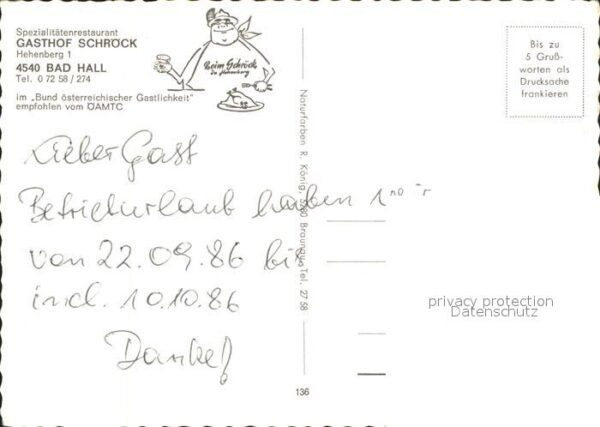 Spezialitätenrestaurant
GASTHOF SCHRÖCK
Hehenberg 1
4540 BAD HALL
Tel. 0 72 58 / 274
im „Bund österreichischer Gastlichkeit"
empfohlen vom ÖAMTC
Beim Schröck
Bis zu
5 Gruß-
worten als
Drucksache
frankieren
Lieber Gast
Betriebsurlaub haben
von 22.09.86 bis
incl. 10.10.86
Danke!
Naturfarben R. König, Braunau, Tel. 27 58
136
privacy protection
Datenschutz